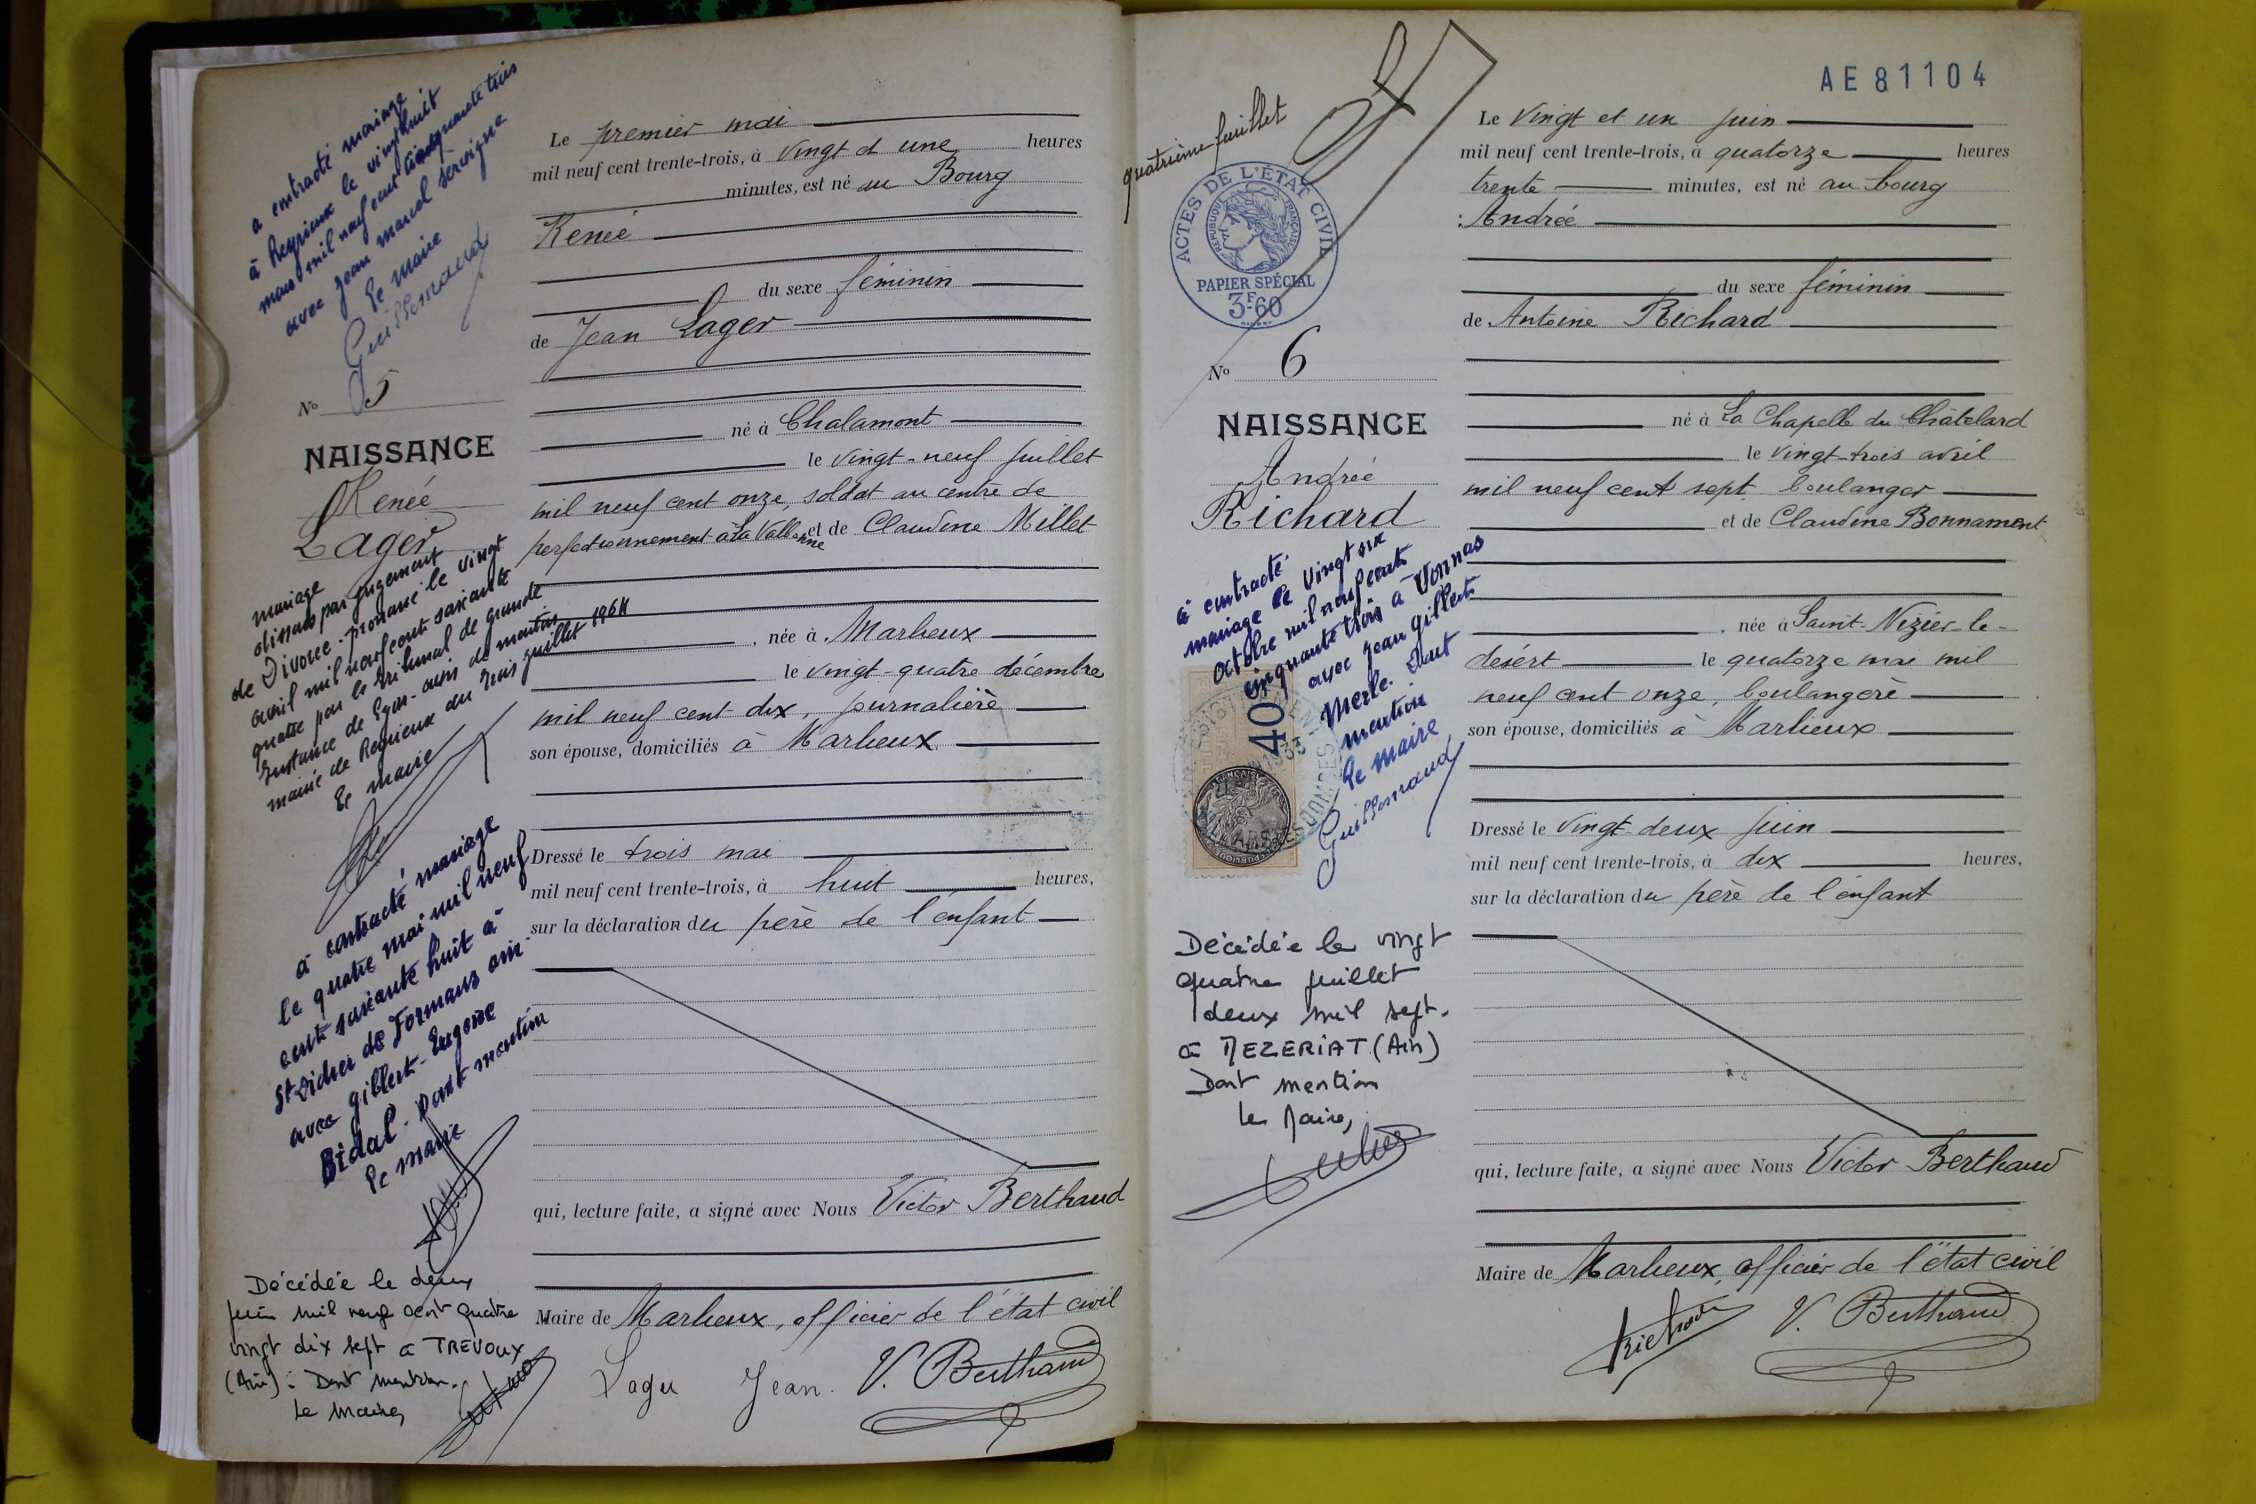 à contracté mariage
à Reyrieux le vingt huit
mars mil neuf cent cinquante trois
avec Jean Marcel
Le maire
Guillemaud
No 5
NAISSANCE
Renée
Lager
mariage
dissous par jugement
de Divorce prononcé le vingt
avril mil neuf cent soixante
quatre par le tribunal de grande
Instance de Lyon - avis de mention
mairie de Reyrieux du trois juillet 1964
le maire
à contracté mariage
le quatre mai mil neuf
cent soixante huit à
St Didier de Formans Ain
avec Gilbert Eugène
Bidal. Dont mention
le maire
Décédée le deux
juin mil neuf cent quatre
vingt dix sept à TREVOUX
(Ain). Dont mention.
Le Maire,
Le premier mai
mil neuf cent trente-trois, à vingt et une heures
minutes, est né au Bourg
Renée
du sexe féminin
de Jean Lager
né à Chalamont
le vingt-neuf juillet
mil neuf cent onze, soldat au centre de
perfectionnement à La Valbonne et de Claudine Millet
née à Marlieux
le vingt-quatre décembre
mil neuf cent dix, journalière
son épouse, domiciliés à Marlieux
Dressé le trois mai
mil neuf cent trente-trois, à huit heures,
sur la déclaration du père de l'enfant
qui, lecture faite, a signé avec Nous Victor Berthaud
Maire de Marlieux, officier de l'état civil
Lager Jean. V. Berthaud
quatrième feuillet
ACTES DE L'ÉTAT CIVIL
RÉPUBLIQUE FRANÇAISE
PAPIER SPÉCIAL
3F60
No 6
NAISSANCE
Andrée
Richard
à contracté
mariage le vingt six
octobre mil neuf cent
cinquante trois à Vonnas
avec Jean Gilbert
Merle. Dont
mention
Le maire
Guillemaud
40
Décédée le vingt
quatre juillet
deux mil sept.
à MEZERIAT (Ain)
Dont mention
Le Maire,
AE81104
Le vingt et un juin
mil neuf cent trente-trois, à quatorze heures
trente minutes, est né au bourg
Andrée
du sexe féminin
de Antoine Richard
né à La Chapelle du Châtelard
le vingt-trois avril
mil neuf cent sept boulanger
et de Claudine Bonnamont
née à Saint-Nizier-le-
désért le quatorze mai mil
neuf cent onze, boulangère
son épouse, domiciliés à Marlieux
Dressé le vingt-deux juin
mil neuf cent trente-trois, à dix heures,
sur la déclaration du père de l'enfant
qui, lecture faite, a signé avec Nous Victor Berthaud
Maire de Marlieux, officier de l'état civil
Richard V. Berthaud